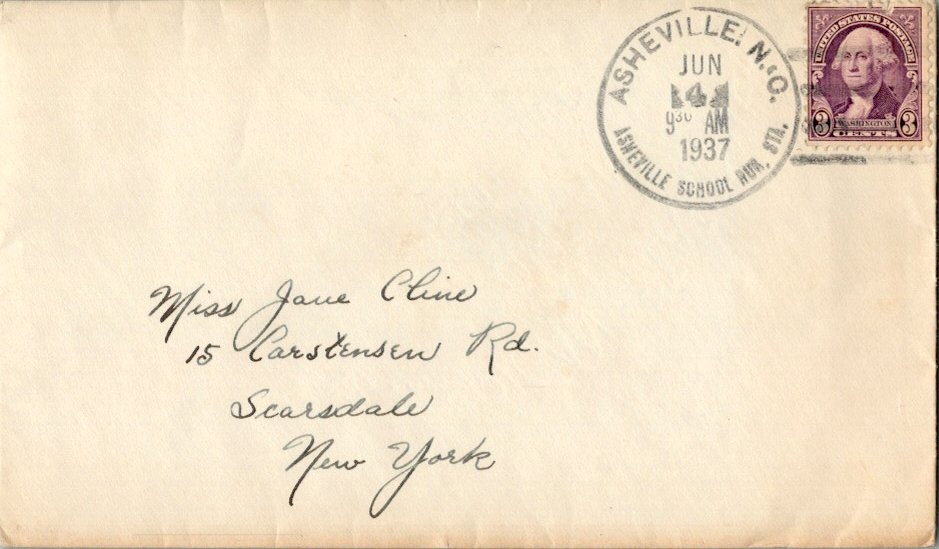 ASHEVILLE, N.C.
JUN
4
9 30 AM
1937
ASHEVILLE SCHOOL RUR. STA.
UNITED STATES POSTAGE
3 WASHINGTON 3
CENTS
Miss Jane Cline
15 Carstensen Rd.
Scarsdale
New York